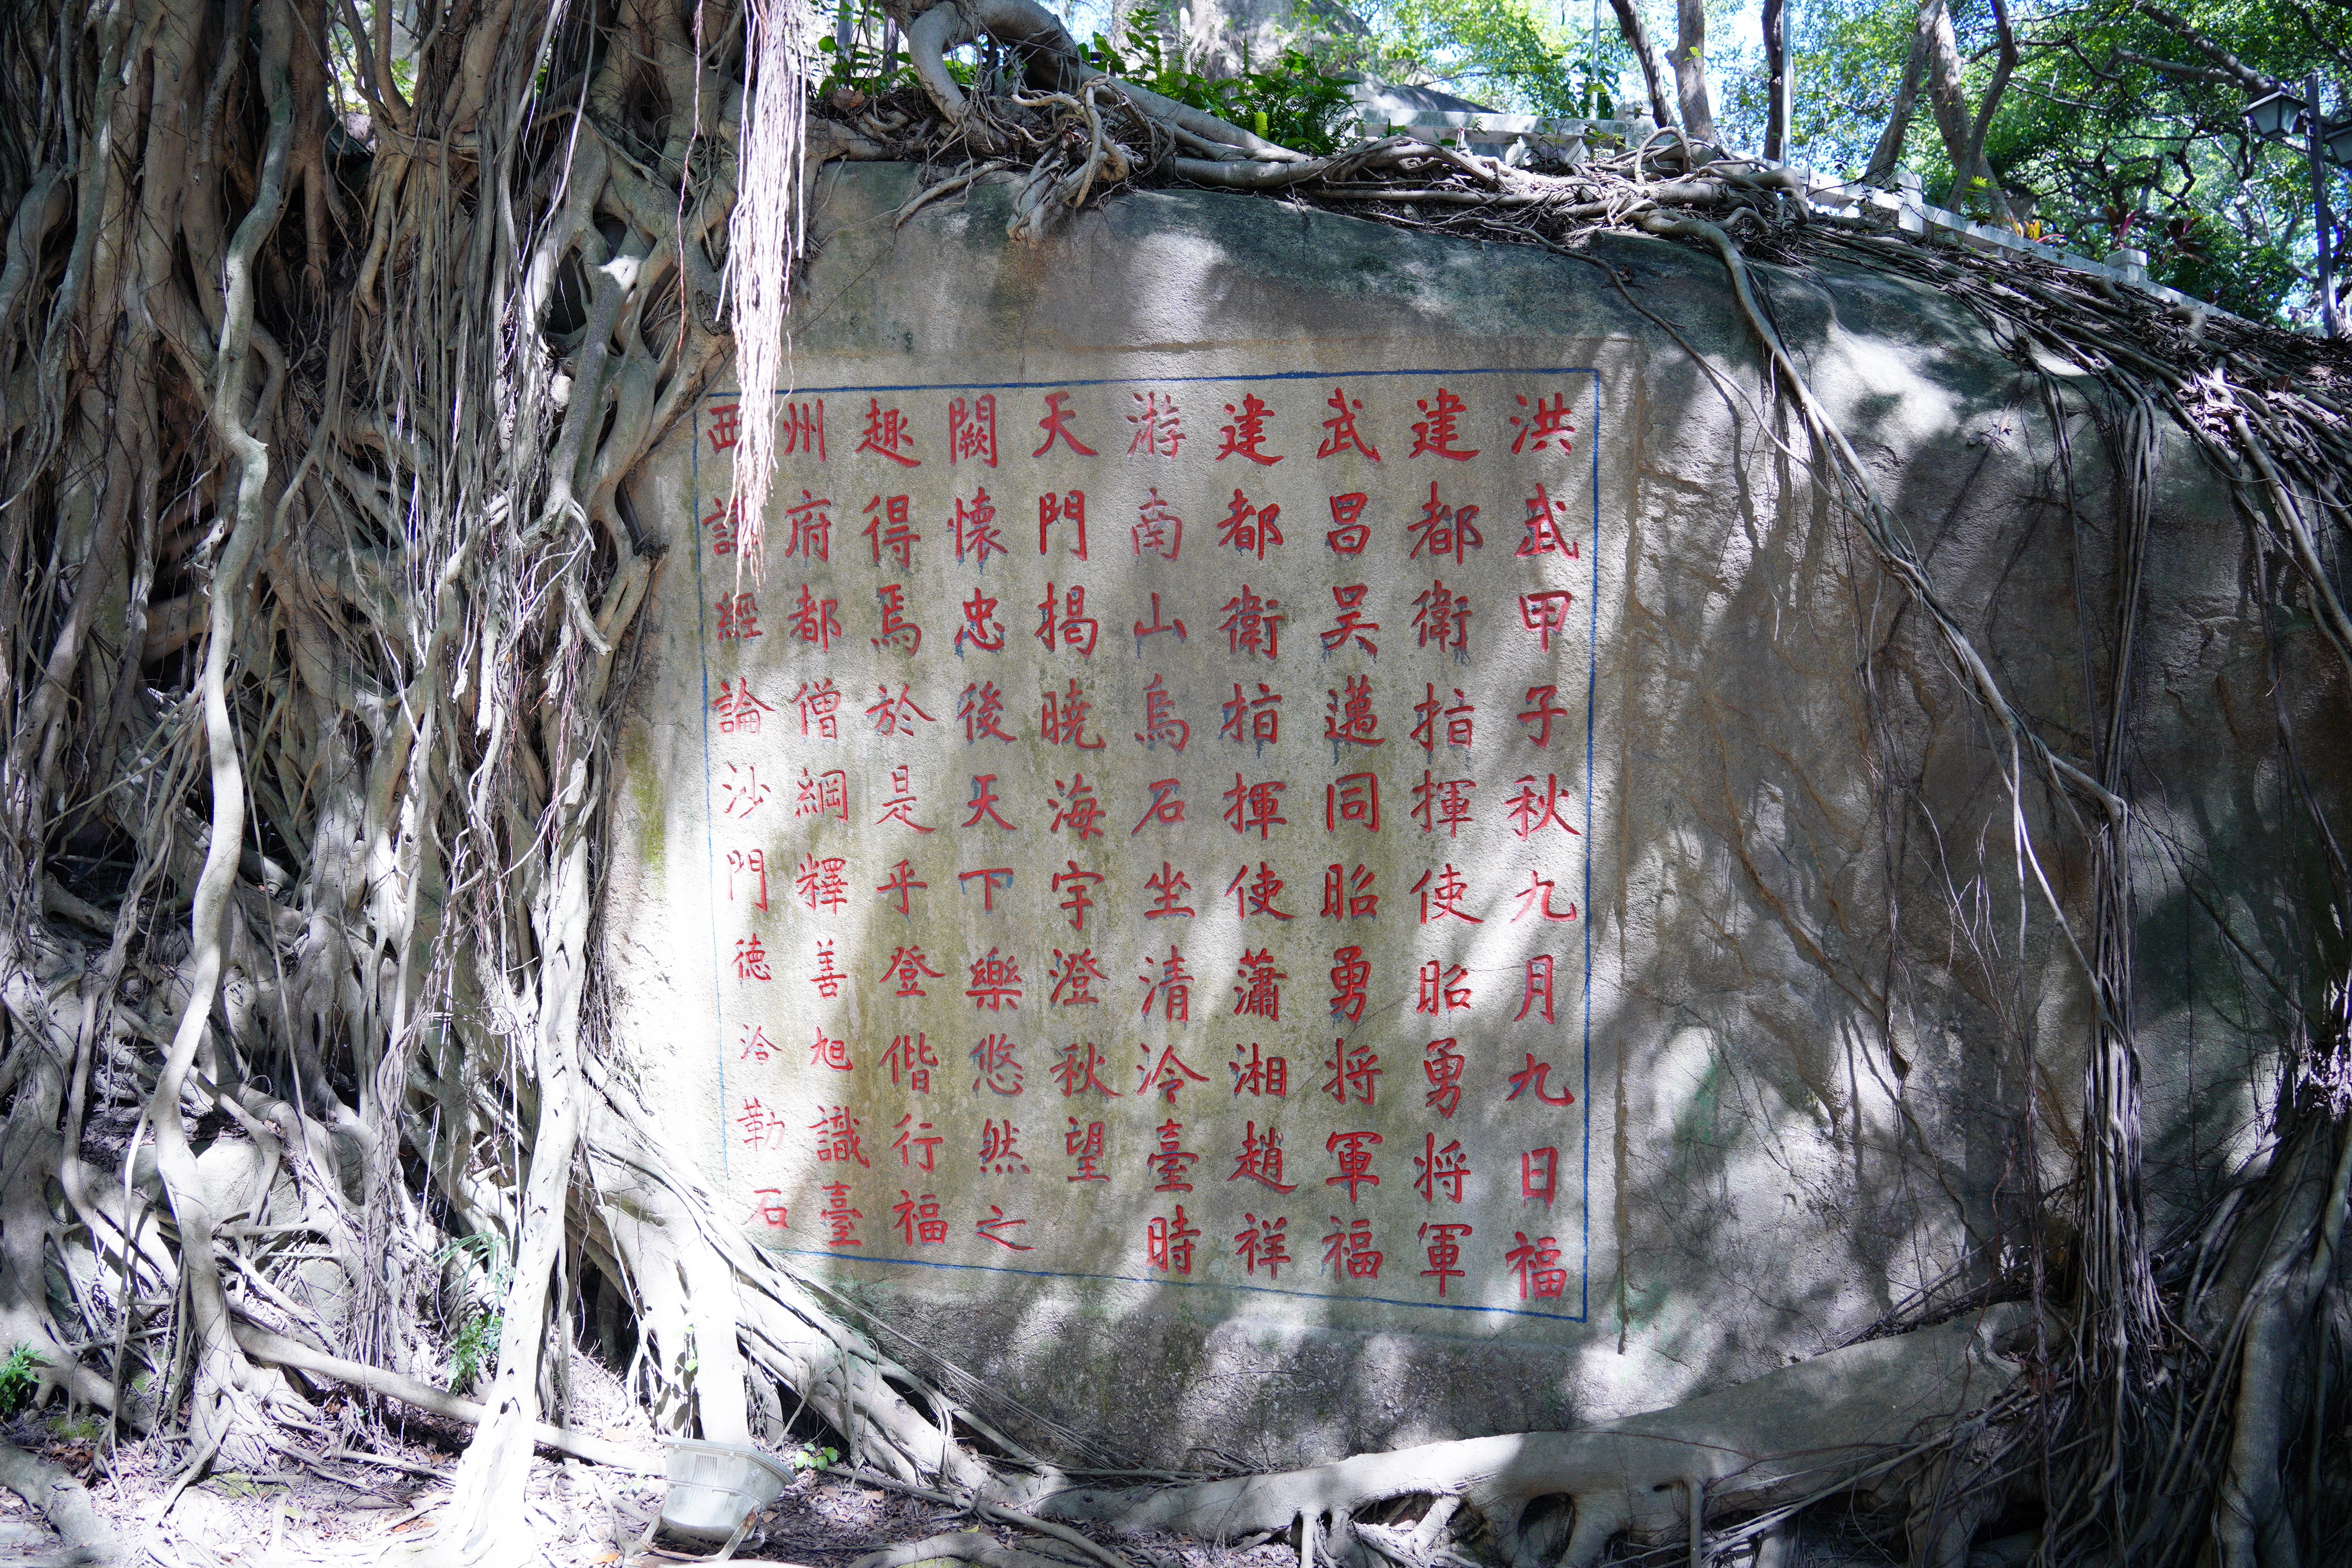 洪武甲子秋九月九日福
建都衛指揮使昭勇將軍
武昌吴邁同昭勇將軍福
建都衛指揮使蕭湘趙祥
游南山烏石坐清泠臺時
天門揭曉海宇澄秋望
闕懷忠後天下樂悠然之
趣得焉於是乎登偕行福
州府都僧綱釋善旭識臺
西講經論沙門德洽勒石